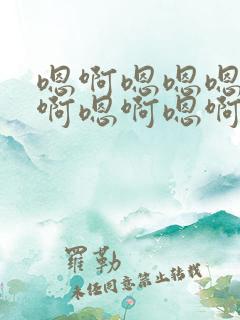 嗯啊嗯嗯嗯
啊嗯啊嗯啊
羅勒
未经同意禁止转载